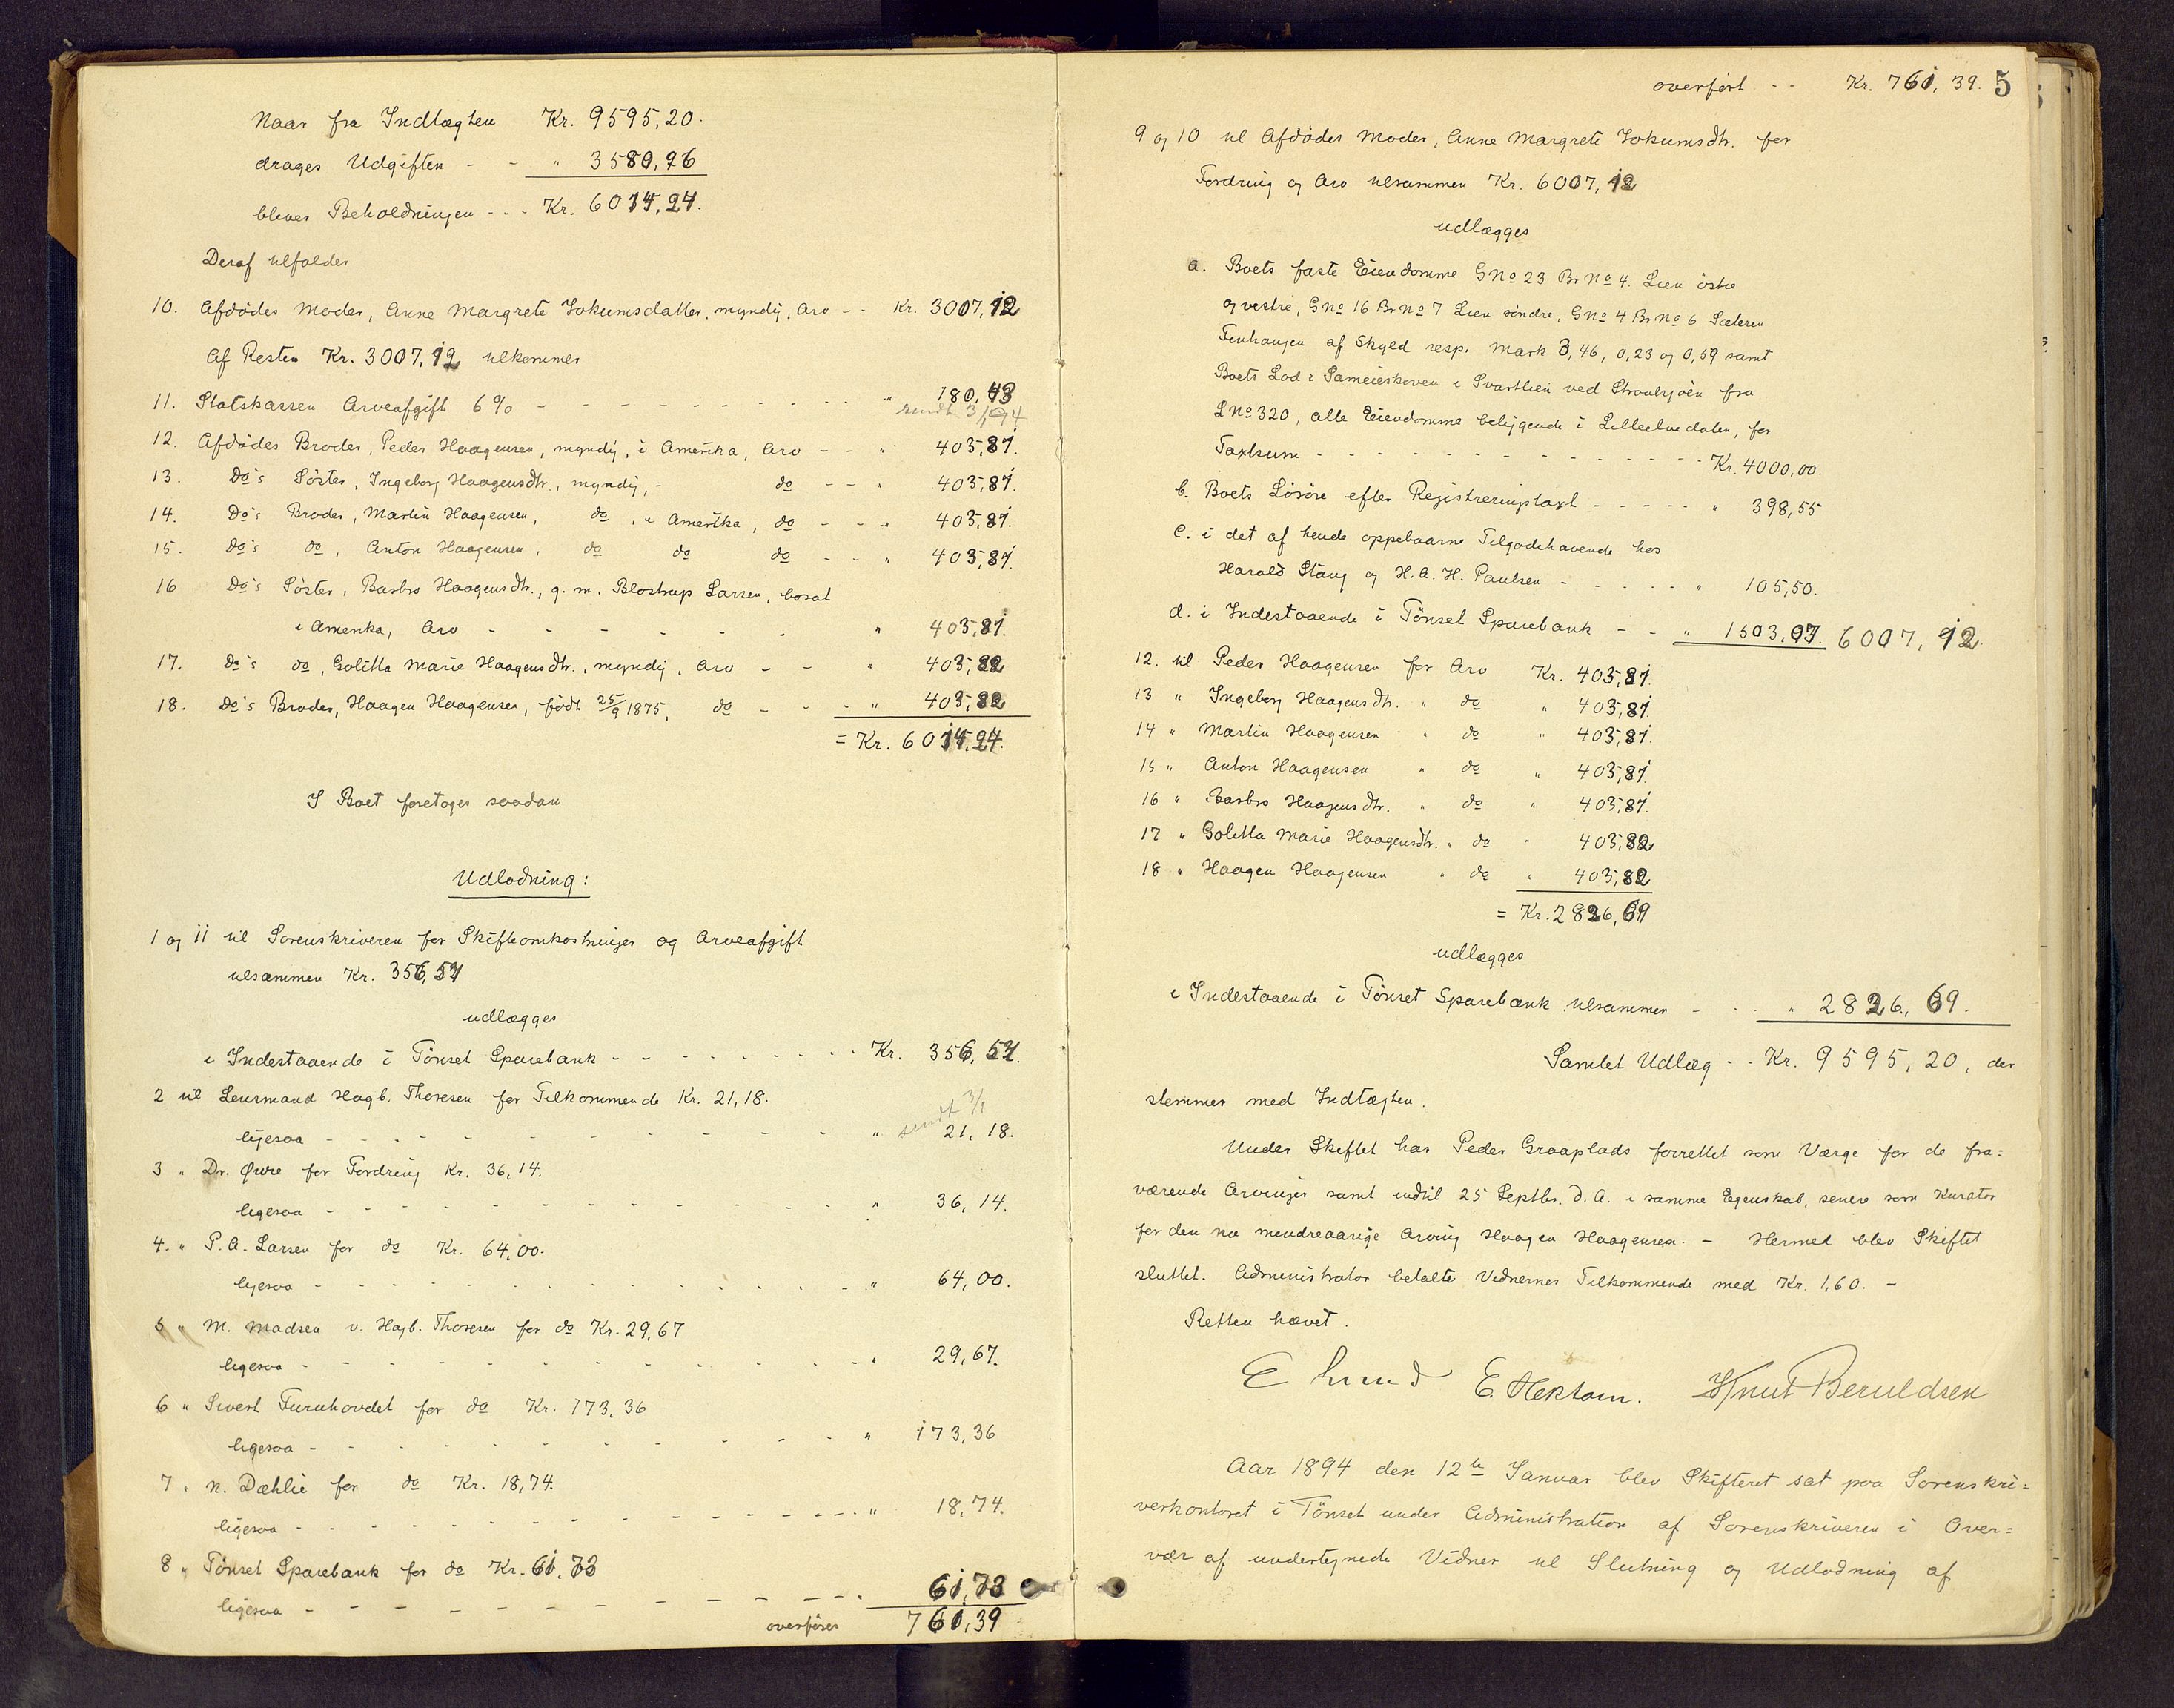 Naar fra Indtægten Kr. 9595,20.
drages Udgiften - - " 3580,96
bliver Beholdningen - - - Kr. 6014,24.
Deraf tilfalder
10. Afdödes Moder, Anne Margrete Jokumsdatter, myndig, Arv - - Kr. 3007,12
Af Resten Kr. 3007,12 tilkommer
11. Statskassen Arveafgift 6% - - - - - - - - - " 180,43
sendt 3/1 94
12. Afdödes Broder, Peder Haagensen, myndig, i Amerika, Arv - - " 403,81.
13. Do's Söster, Ingeborg Haagensdtr., myndig, - do - - " 403,81.
14. Do's Broder, Martin Haagensen, do, i Amerika, do - - " 403,81.
15. Do's do, Anton Haagensen, do do do - - " 403,81.
16 Do's Söster, Barbro Haagensdtr., g. m. Blostrup Larsen, bosat
i Amerika, Arv - - - - - - " 403,81.
17. Do's do, Golitta Marie Haagensdtr., myndig, Arv - - " 403,82
18. Do's Broder, Haagen Haagensen, födt 25/9 1875, do - - - " 403,82
= Kr. 6014,24.
I Boet foretoges saadan
Udlodning:
1 og 11 til Sorenskriveren for Skifteomkostninger og Arveafgift
tilsammen Kr. 356,57
udlægges
i Indestaaende i Tönset Sparebank - - - - - - - - - Kr. 356,57.
2 til Lensmand Hagb. Thoresen for Tilkommende Kr. 21,18.
sendt 3/1
ligesaa - - - - - - - - - " 21,18.
3 " Dr. Øvre for Fordring Kr. 36,14.
ligesaa - - - - - - - - - " 36,14.
4. " P. A. Larsen for do Kr. 64,00.
ligesaa - - - - - - - - - " 64,00.
5 " M. Madsen v. Hagb. Thoresen for do Kr. 29,67
ligesaa - - - - - - - - - " 29,67.
6 " Sivert Furuhovdet for do Kr. 173,36
ligesaa - - - - - - - - - " 173,36
7 " N. Dæhlie for do Kr. 18,74.
ligesaa - - - - - - - - - " 18,74.
8 " Tönset Sparebank for do Kr. 61,73
ligesaa - - - - - - - - - " 61,73
overföres 761,39
overfört - - Kr. 761,39. 5
9 og 10 til Afdödes Moder, Anne Margrete Jokumsdtr. for
Fordring og Arv tilsammen Kr. 6007,12
udlægges
a. Boets faste Eiendomme GNo 23 BrNo 4. Lien östre
og vestre, GNo 16 BrNo 7 Lien söndre, GNo 4 BrNo 6 Sæteren
Finhaugen af Skyld resp. Mark 3,46, 0,23 og 0,59 samt
Boets Lod i Sameieskoven i Svartlien ved Straalsjöen fra
LNo 320, alle Eiendomme beliggende i Lilleelvedalen, for
Taxtsum - - - - - - - - - - - - Kr. 4000,00.
b. Boets Lösöre efter Registreringstaxt - - - - - " 398,55
c. i det af hende oppebaarne Tilgodehavende hos
Harald Stang og H. A. H. Paulsen - - - - - " 105,50.
d. i Indestaaende i Tönset Sparebank - - " 1503,07. 6007,12.
12. til Peder Haagensen for Arv Kr. 403,81.
13 " Ingeborg Haagensdtr. " do " 403,81.
14 " Martin Haagensen " do " 403,81.
15 " Anton Haagensen " do " 403,81.
16 " Barbro Haagensdtr. " do " 403,81.
17 " Golitta Marie Haagensdtr. " do " 403,82
18 " Haagen Haagensen " do " 403,82
= Kr. 2826,69
udlægges
i Indestaaende i Tönset Sparebank tilsammen - - - " 2826,69.
Samlet Udlæg - - Kr. 9595,20, der
stemmer med Indtægten.
Under Skiftet har Peder Graaplads forrettet som Værge for de fra=
værende Arvinger samt indtil 25 Septbr. d. A. i samme Egenskab, senere som Kurator
for den nu mindreaarige Arving Haagen Haagensen. - Hermed blev Skiftet
sluttet. Administrator betalte Vidnernes Tilkommende med Kr. 1,60. -
Retten hævet.
E Lund E. Hektoen. Knut Beruldsen
Aar 1894 den 12te Januar blev Skifteret sat paa Sorenskri=
verkontoret i Tönset under Administration af Sorenskriveren i Over=
vær af undertegnede Vidner til Slutning og Udlodning af